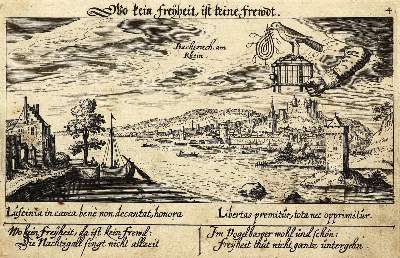 Wo kein freyheit, ist keine frewdt.
4
Bacherach am
Rhein.
Luscinia in cavea bene non decantat, honora
Libertas premitur, tota nec opprimitur.
Wo kein freyheit, da ist kein frewd:
Die Nachtigall singt nicht allzeit
Im Vogelbawer wohl und schön:
freyheit thut nicht gantz untergehn.